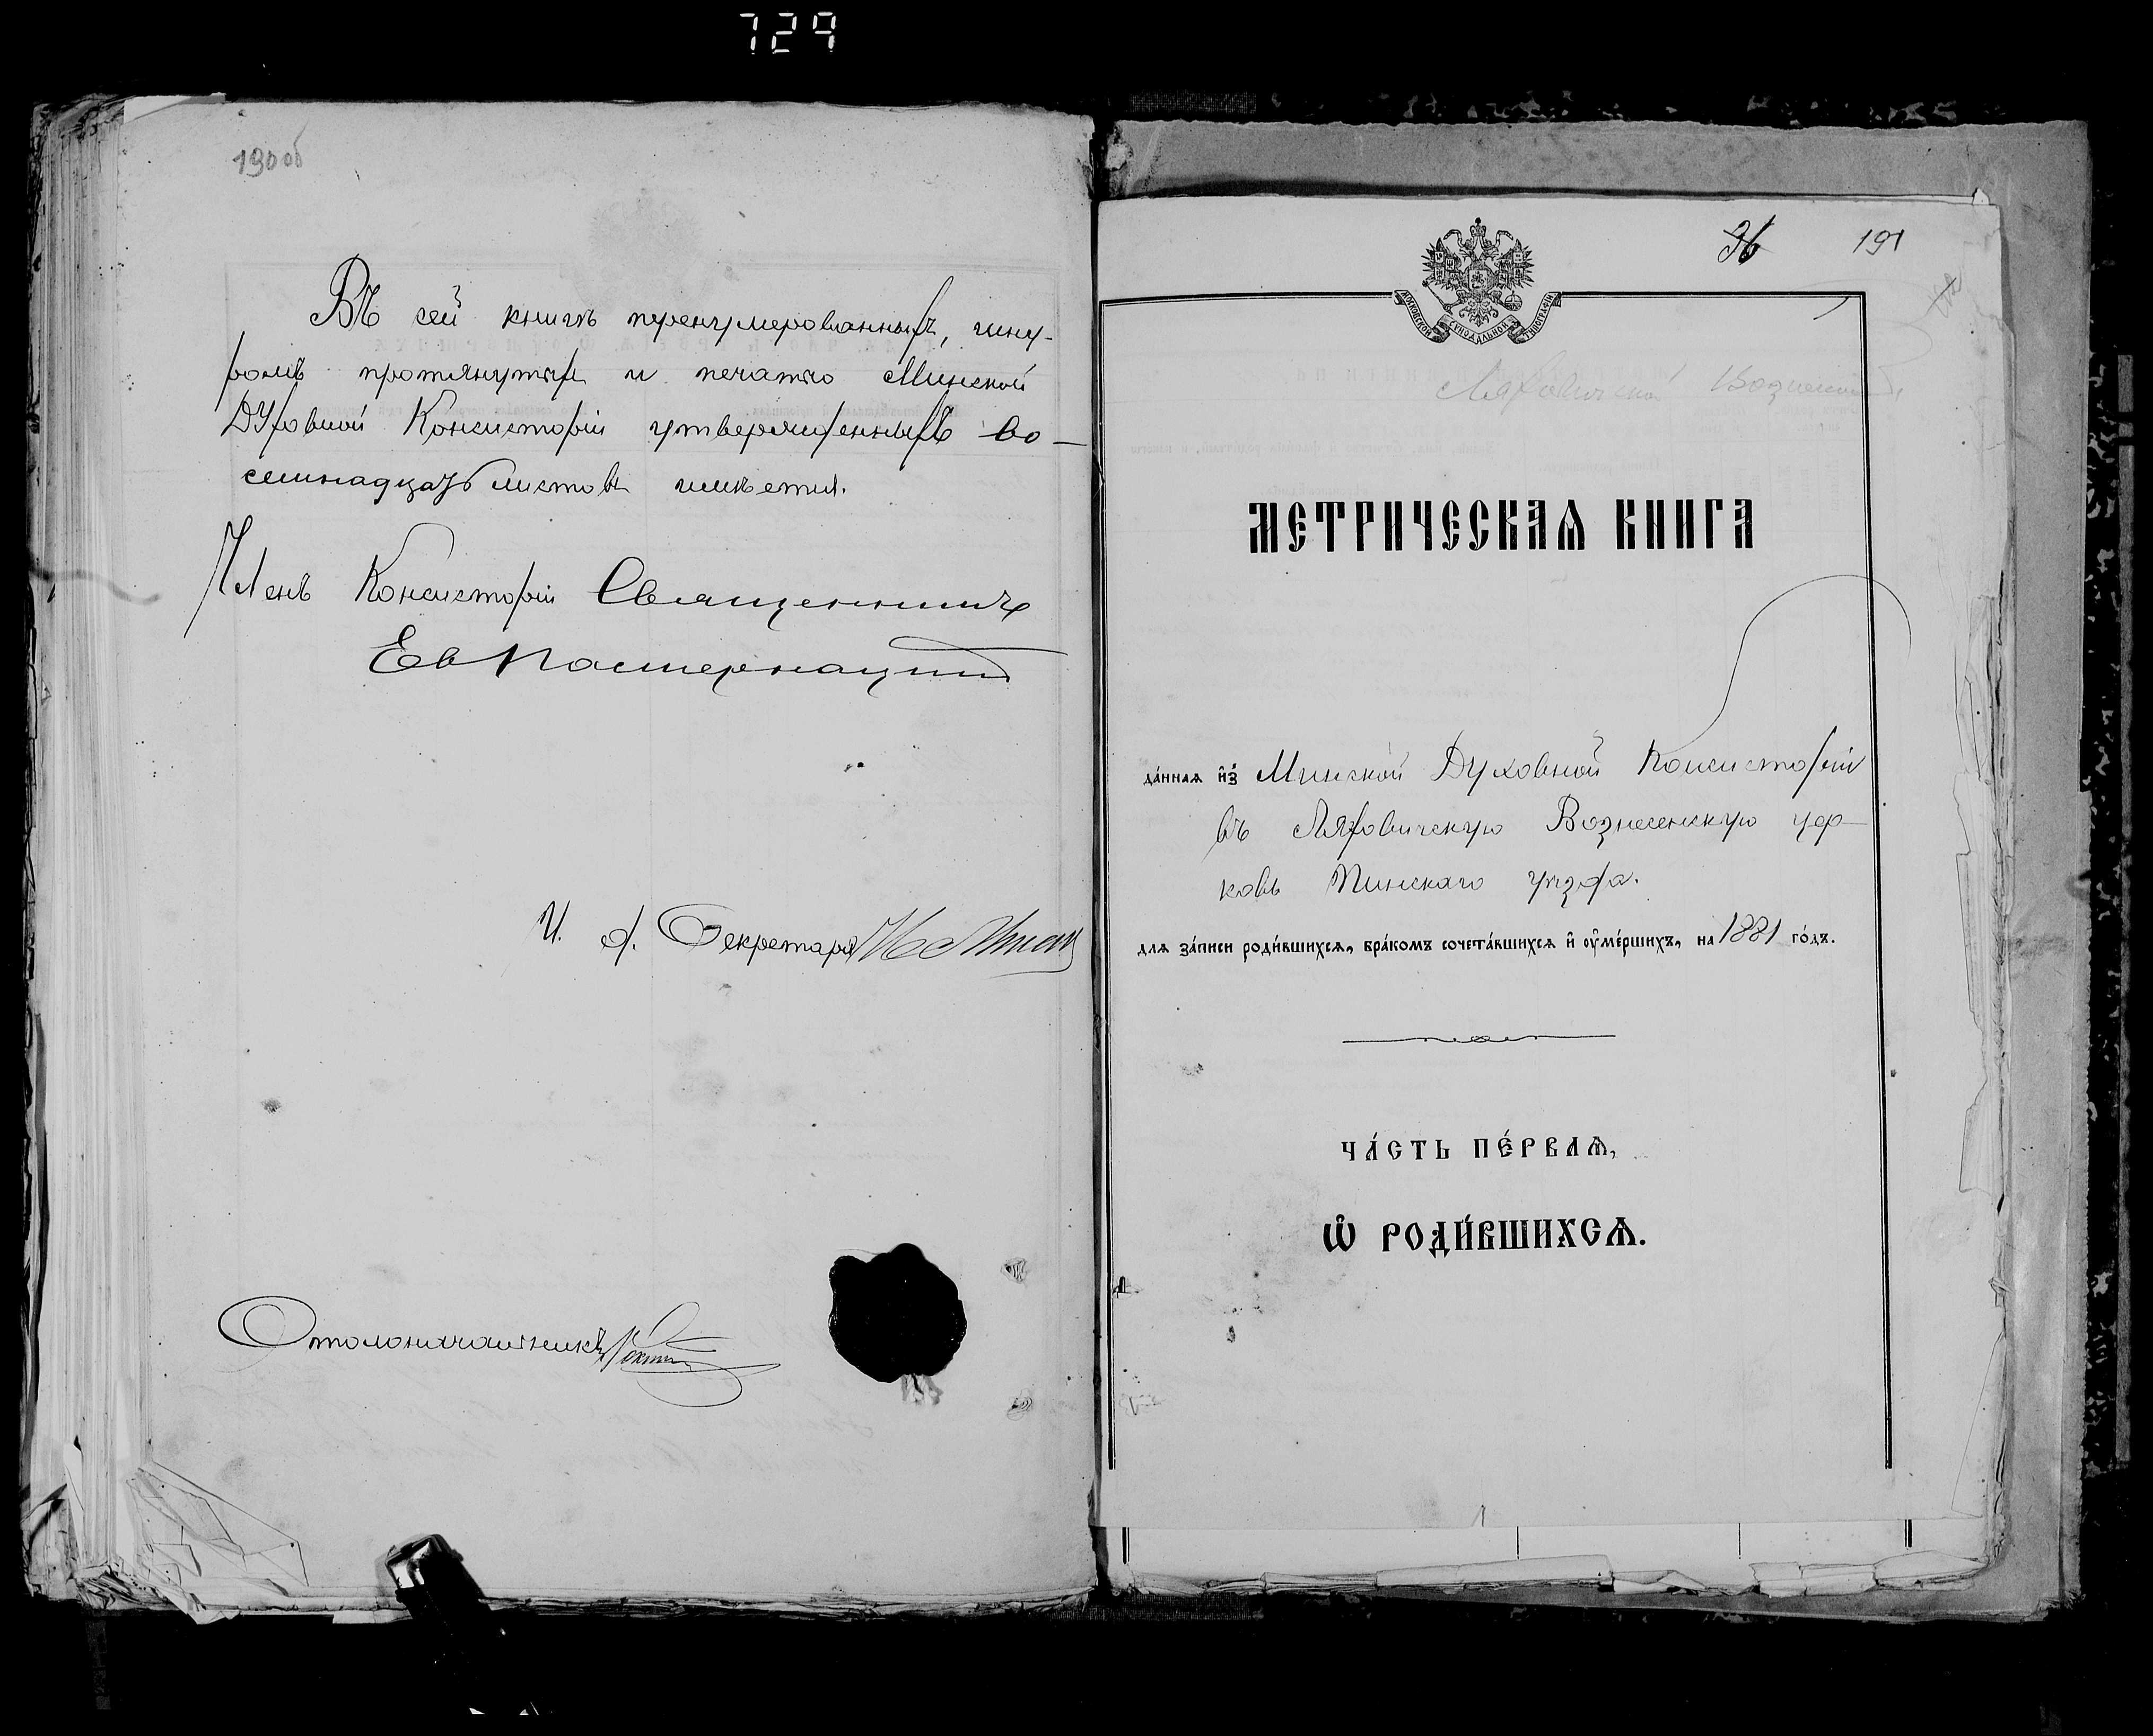 729
190 об
Въ сей книгѣ перенумерованныхъ, шну-
ромъ протянутыхъ и печатью Минской
Духовной Консисторіи утвержденныхъ во-
семнадцать листовъ имѣется.
Членъ Консисторіи Священникъ
Ев Пастернацкій
И. д. Секретаря
Столоначальникъ
36 191
МОСКОВСКОЙ СѴНОДАЛЬНОЙ ТИПОГРАФІИ
Ляховичской Вознесенской
МЕТРИЧЕСКАѦ КНИГА
да́ннаѧ и҆з̾ Минской Духовной Консисторіи
въ Ляховичскую Вознесенскую цер-
ковь Пинскаго уѣзда.
длѧ за́писи роди́вшихсѧ, бра́комъ сочета́вшихсѧ и҆ оу҆ме́ршихъ, на 1881 го́дъ.
ЧА́СТЬ ПЕ́РВАѦ,
Ѽ РОДИ́ВШИХСѦ.
1